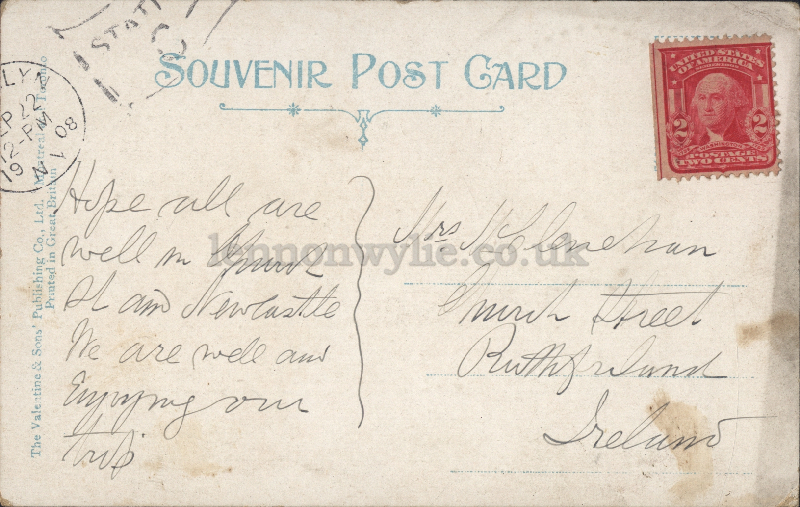 STATI
SOUVENIR POST CARD
LYN
SEP 22
12-PM
1908
N.Y.
UNITED STATES OF AMERICA
2 2
WASHINGTON
POSTAGE
TWO CENTS
The Valentine & Sons' Publishing Co., Ltd. Montreal Toronto
Printed in Great Britain
Hope all are
well in Church
St and Newcastle
We are well and
Enjoying our
trip
Mrs McClenehan
Church Street
Rathfriland
Ireland
lennonwylie.co.uk